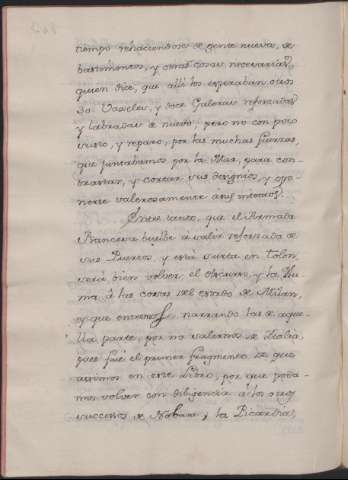 tiempo rehaciendose de gente nueva, de
bastimentos, y otras cosas necesarias,
quien dice, que allí los esperaban otros
30 Vaxeles, y doce Galeras reforzadas
y labradas de nuevo; pero no con poco
susto, y reparo, por las muchas fuerzas,
que juntabamos por la Mar, para con-
trastar, y cortar sus designios, y opo-
nerse valerosamente á sus intentos.
Entre tanto, que el Armada
Francesa buelbe a salir reforzada de
sus Puertos, y está surta en Tolon,
será bien volver el discurso, y la Plu-
ma á las cosas del estado de Milan,
y que entremos narrando las de aque-
lla parte, por no valernos de
que fué el primer fragmento de que
asimos en este Libro, por que poda-
mos volver con diligencia á los otros
successos de Nabarra, y la Picardia,